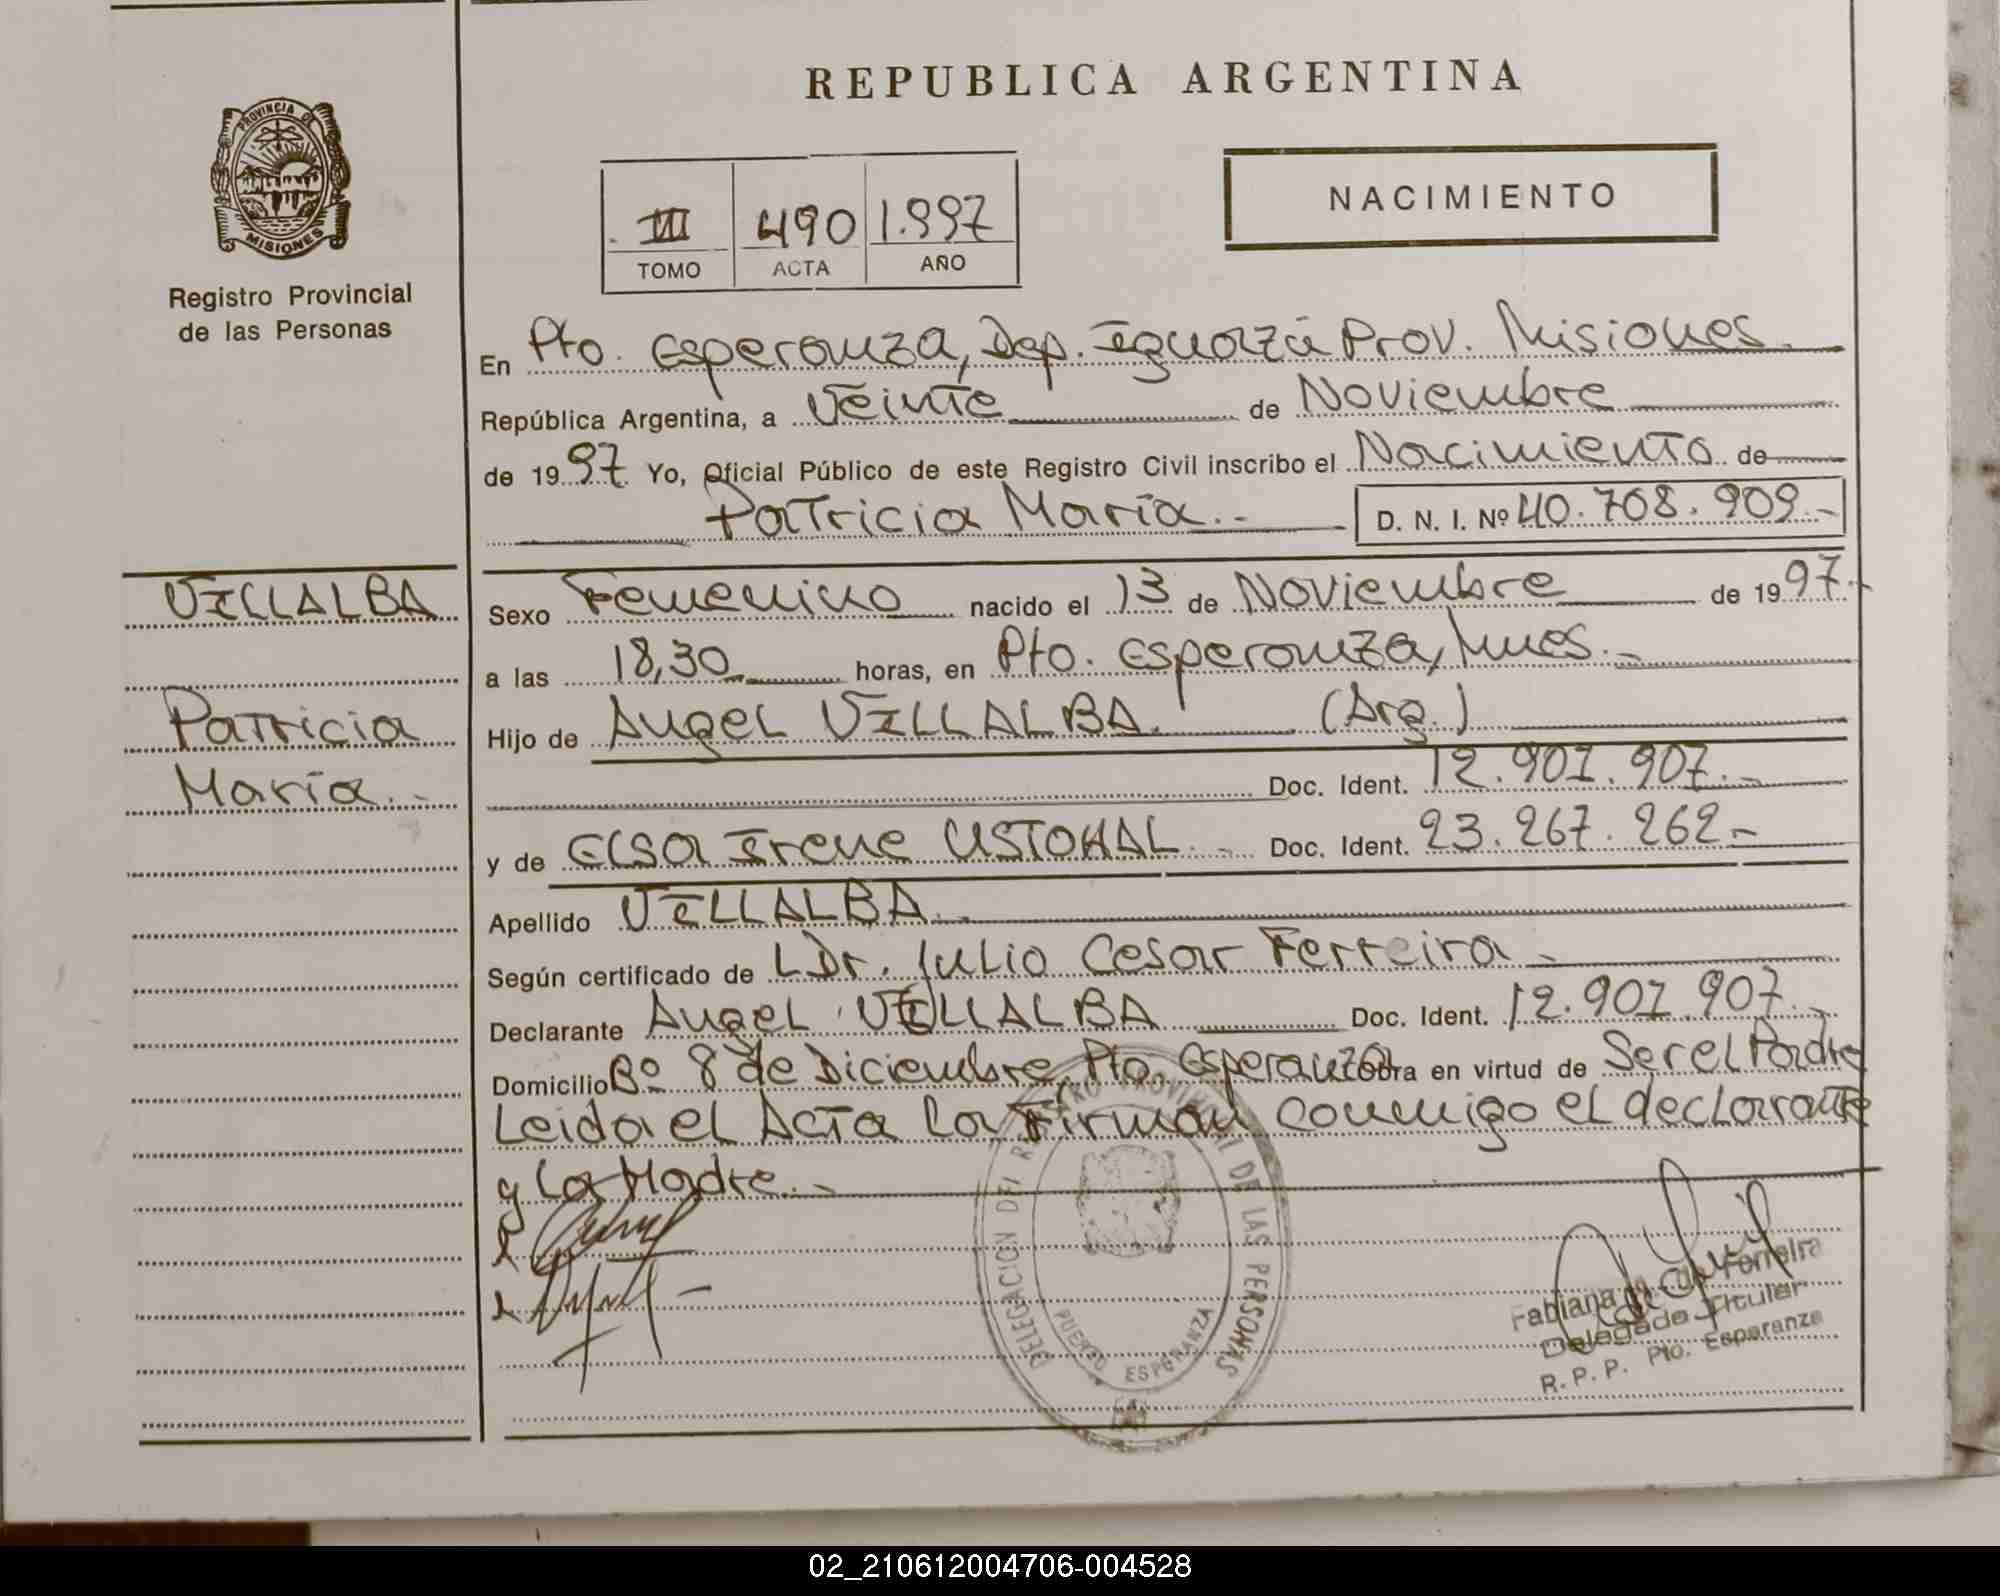 REPUBLICA ARGENTINA
PROVINCIA DE
MISIONES
Registro Provincial
de las Personas
NACIMIENTO
III 490 1.997
TOMO ACTA AÑO
En Pto. Esperanza, Dep. Iguazú Prov. Misiones.
República Argentina, a Veinte de Noviembre
de 1997. Yo, Oficial Público de este Registro Civil inscribo el Nacimiento de
Patricia María.- D. N. I. Nº 40.708.909.-
VILLALBA
Patricia
María.-
Sexo Femenino nacido el 13 de Noviembre de 1997.-
a las 18,30 horas, en Pto. Esperanza, Mnes.-
Hijo de Angel VILLALBA. (Arg.)
Doc. Ident. 12.901.907.-
y de Elsa Irene USTOHAL.- Doc. Ident. 23.267.262-
Apellido VILLALBA.-
Según certificado de LDr. Julio Cesar Ferreira-
Declarante Angel VILLALBA Doc. Ident. 12.901.907.-
Domicilio Bº 8 de Diciembre, Pto. Esperanza Obra en virtud de Ser el Padre
Leida el Acta la Firman conmigo el declarante
y la Madre.-
DELEGACION DEL REGISTRO PROVINCIAL DE LAS PERSONAS
PUERTO ESPERANZA
Fabiana Ferreira
Delegado Titular
R. P. P. Pto. Esperanza
02_210612004706-004528